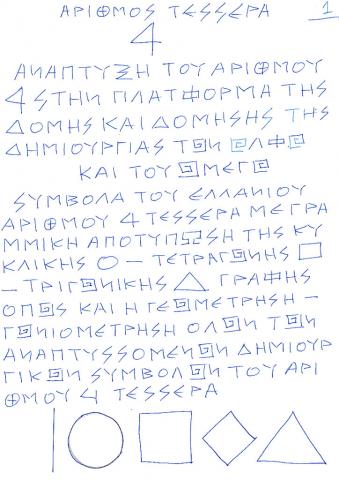 ΑΡΙΘΜΟΣ ΤΕΣΣΕΡΑ
1
4
ΑΝΑΠΤΥΞΗ ΤΟΥ ΑΡΙΘΜΟΥ
4 ΣΤΗΝ ΠΛΑΤΦΟΡΜΑ ΤΗΣ
ΔΟΜΗΣ ΚΑΙ ΔΟΜΗΣΗΣ ΤΗΣ
ΔΗΜΙΟΥΡΓΙΑΣ ΤΩΝ
ΚΑΙ ΤΟΥ ΩΜΕΓΑ
ΣΥΜΒΟΛΑ ΤΟΥ ΕΛΛΑΝΙΟΥ
ΑΡΙΘΜΟΥ 4 ΤΕΣΣΕΡΑ ΜΕ ΓΡΑ
ΜΜΙΚΗ ΑΠΟΤΥΠΩΣΗ ΤΗΣ ΚΥ
ΚΛΙΚΗΣ – ΤΕΤΡΑΓΩΝΗΣ
– ΤΡΙΓΩΝΙΚΗΣ ΓΡΑΦΗΣ
ΟΠΩΣ ΚΑΙ Η ΓΕΩΜΕΤΡΗΣΗ –
ΓΩΝΙΟΜΕΤΡΗΣΗ ΟΛΩΝ ΤΩΝ
ΑΝΑΠΤΥΣΣΟΜΕΝΩΝ ΔΗΜΙΟΥΡ
ΓΙΚΩΝ ΣΥΜΒΟΛΩΝ ΤΟΥ ΑΡΙ
ΘΜΟΥ 4 ΤΕΣΣΕΡΑ